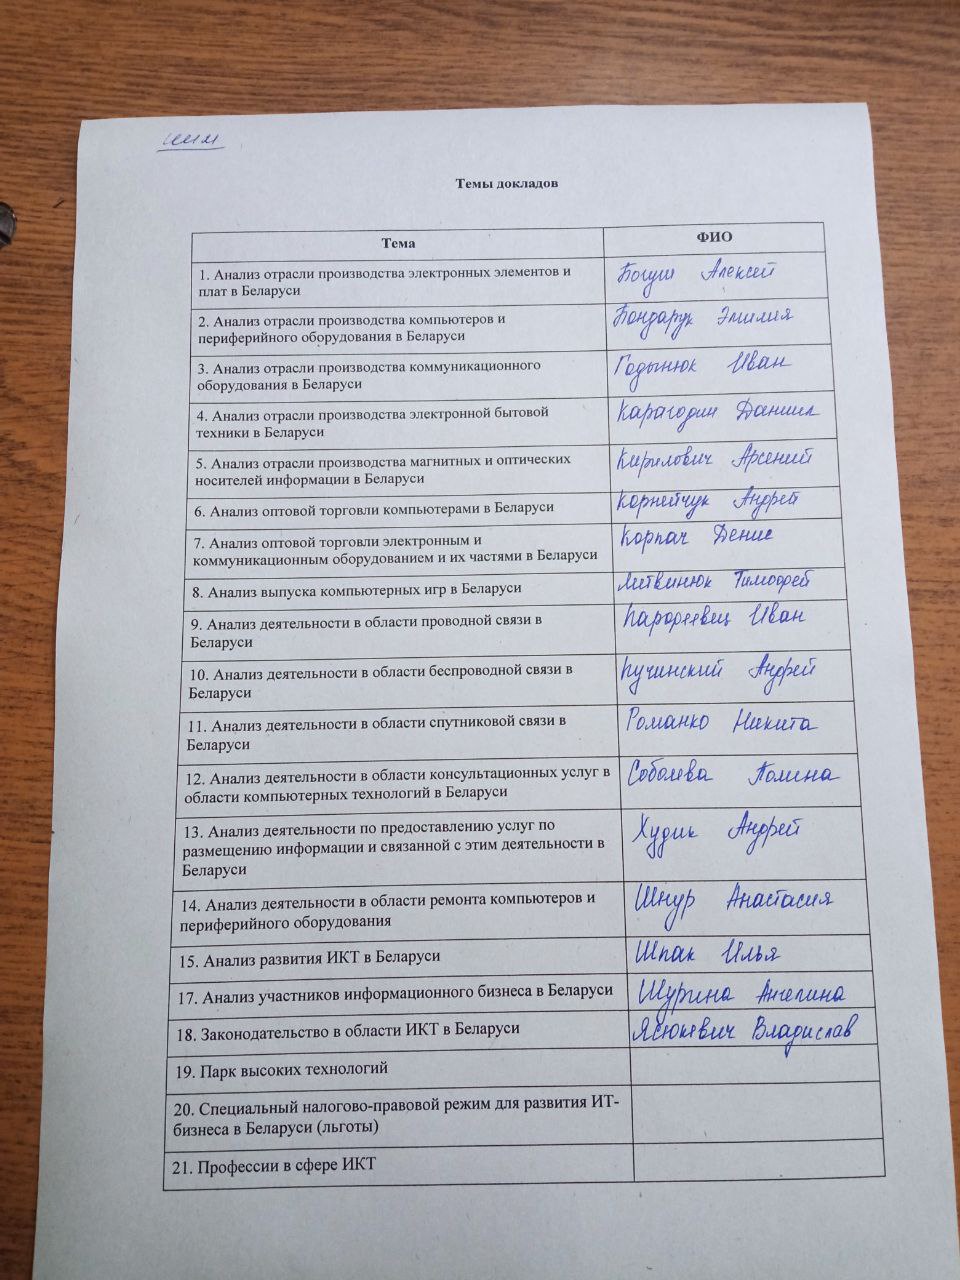 Темы докладов
Тема
ФИО
1. Анализ отрасли производства электронных элементов и
плат в Беларуси
Богуш Алексей
2. Анализ отрасли производства компьютеров и
периферийного оборудования в Беларуси
Бондарук Эмилия
3. Анализ отрасли производства коммуникационного
оборудования в Беларуси
Годынюк Иван
4. Анализ отрасли производства электронной бытовой
техники в Беларуси
Карагодин Даниил
5. Анализ отрасли производства магнитных и оптических
носителей информации в Беларуси
Кирилович Арсений
6. Анализ оптовой торговли компьютерами в Беларуси
Корнейчук Андрей
7. Анализ оптовой торговли электронным и
коммуникационным оборудованием и их частями в Беларуси
Корпач Денис
8. Анализ выпуска компьютерных игр в Беларуси
Литвинюк Тимофей
9. Анализ деятельности в области проводной связи в
Беларуси
Иван
10. Анализ деятельности в области беспроводной связи в
Беларуси
Пучинский Андрей
11. Анализ деятельности в области спутниковой связи в
Беларуси
Романко Никита
12. Анализ деятельности в области консультационных услуг в
области компьютерных технологий в Беларуси
Соболева Полина
13. Анализ деятельности по предоставлению услуг по
размещению информации и связанной с этим деятельности в
Беларуси
Худик Андрей
14. Анализ деятельности в области ремонта компьютеров и
периферийного оборудования
Шнур Анастасия
15. Анализ развития ИКТ в Беларуси
Шпак Илья
17. Анализ участников информационного бизнеса в Беларуси
Шурина Ангелина
18. Законодательство в области ИКТ в Беларуси
Ясюкевич Владислав
19. Парк высоких технологий
20. Специальный налогово-правовой режим для развития ИТ-
бизнеса в Беларуси (льготы)
21. Профессии в сфере ИКТ